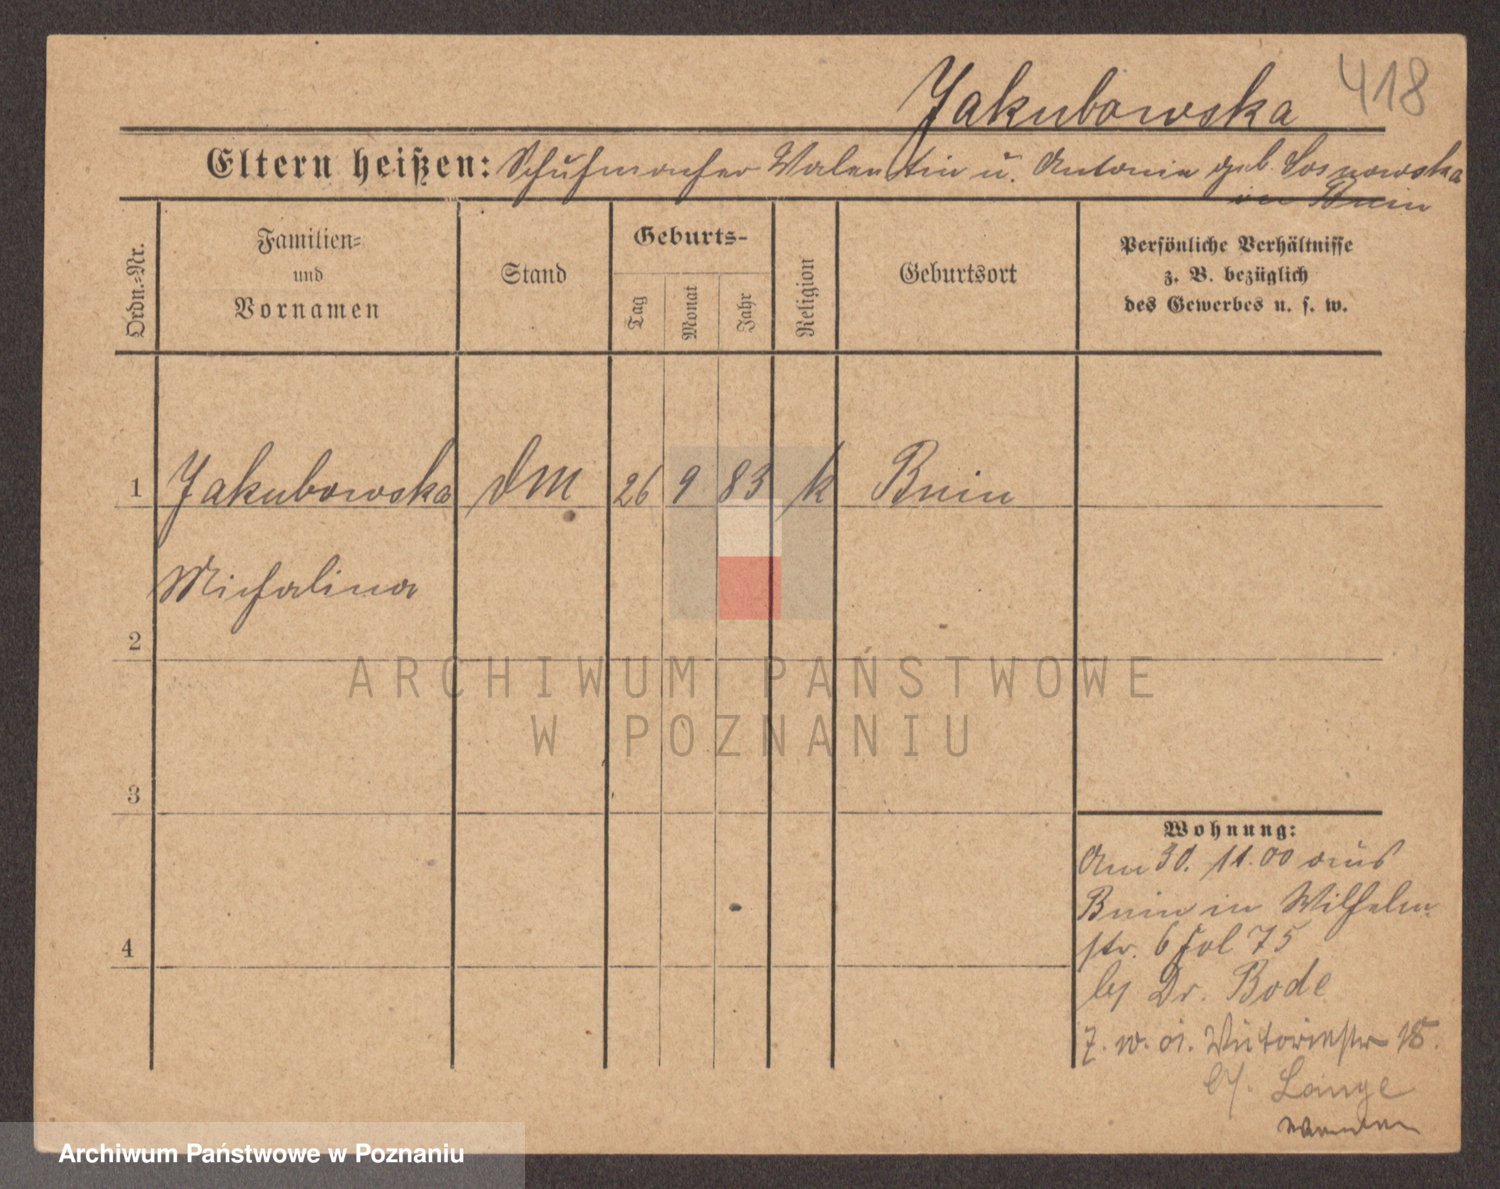 418
Jakubowska
Eltern heißen: Schuhmacher Valentin u. Antonie geb. Sosnowska
in Bnin
Ordn.-Nr.
Familien-
und
Vornamen
Stand
Geburts-
Tag
Monat
Jahr
Religion
Geburtsort
Persönliche Verhältnisse
z. B. bezüglich
des Gewerbes u. s. w.
1 Jakubowska DM 26 9 83 k Bnin
Michalina
2
3
4
Wohnung:
Am 30. 11. 00 aus
Bnin in Wilhelm
str. 6 Fol 75
by Dr. Bode
Victoriastr 18.
by. Lange
wenden
ARCHIWUM PAŃSTWOWE
W POZNANIU
Archiwum Państwowe w Poznaniu